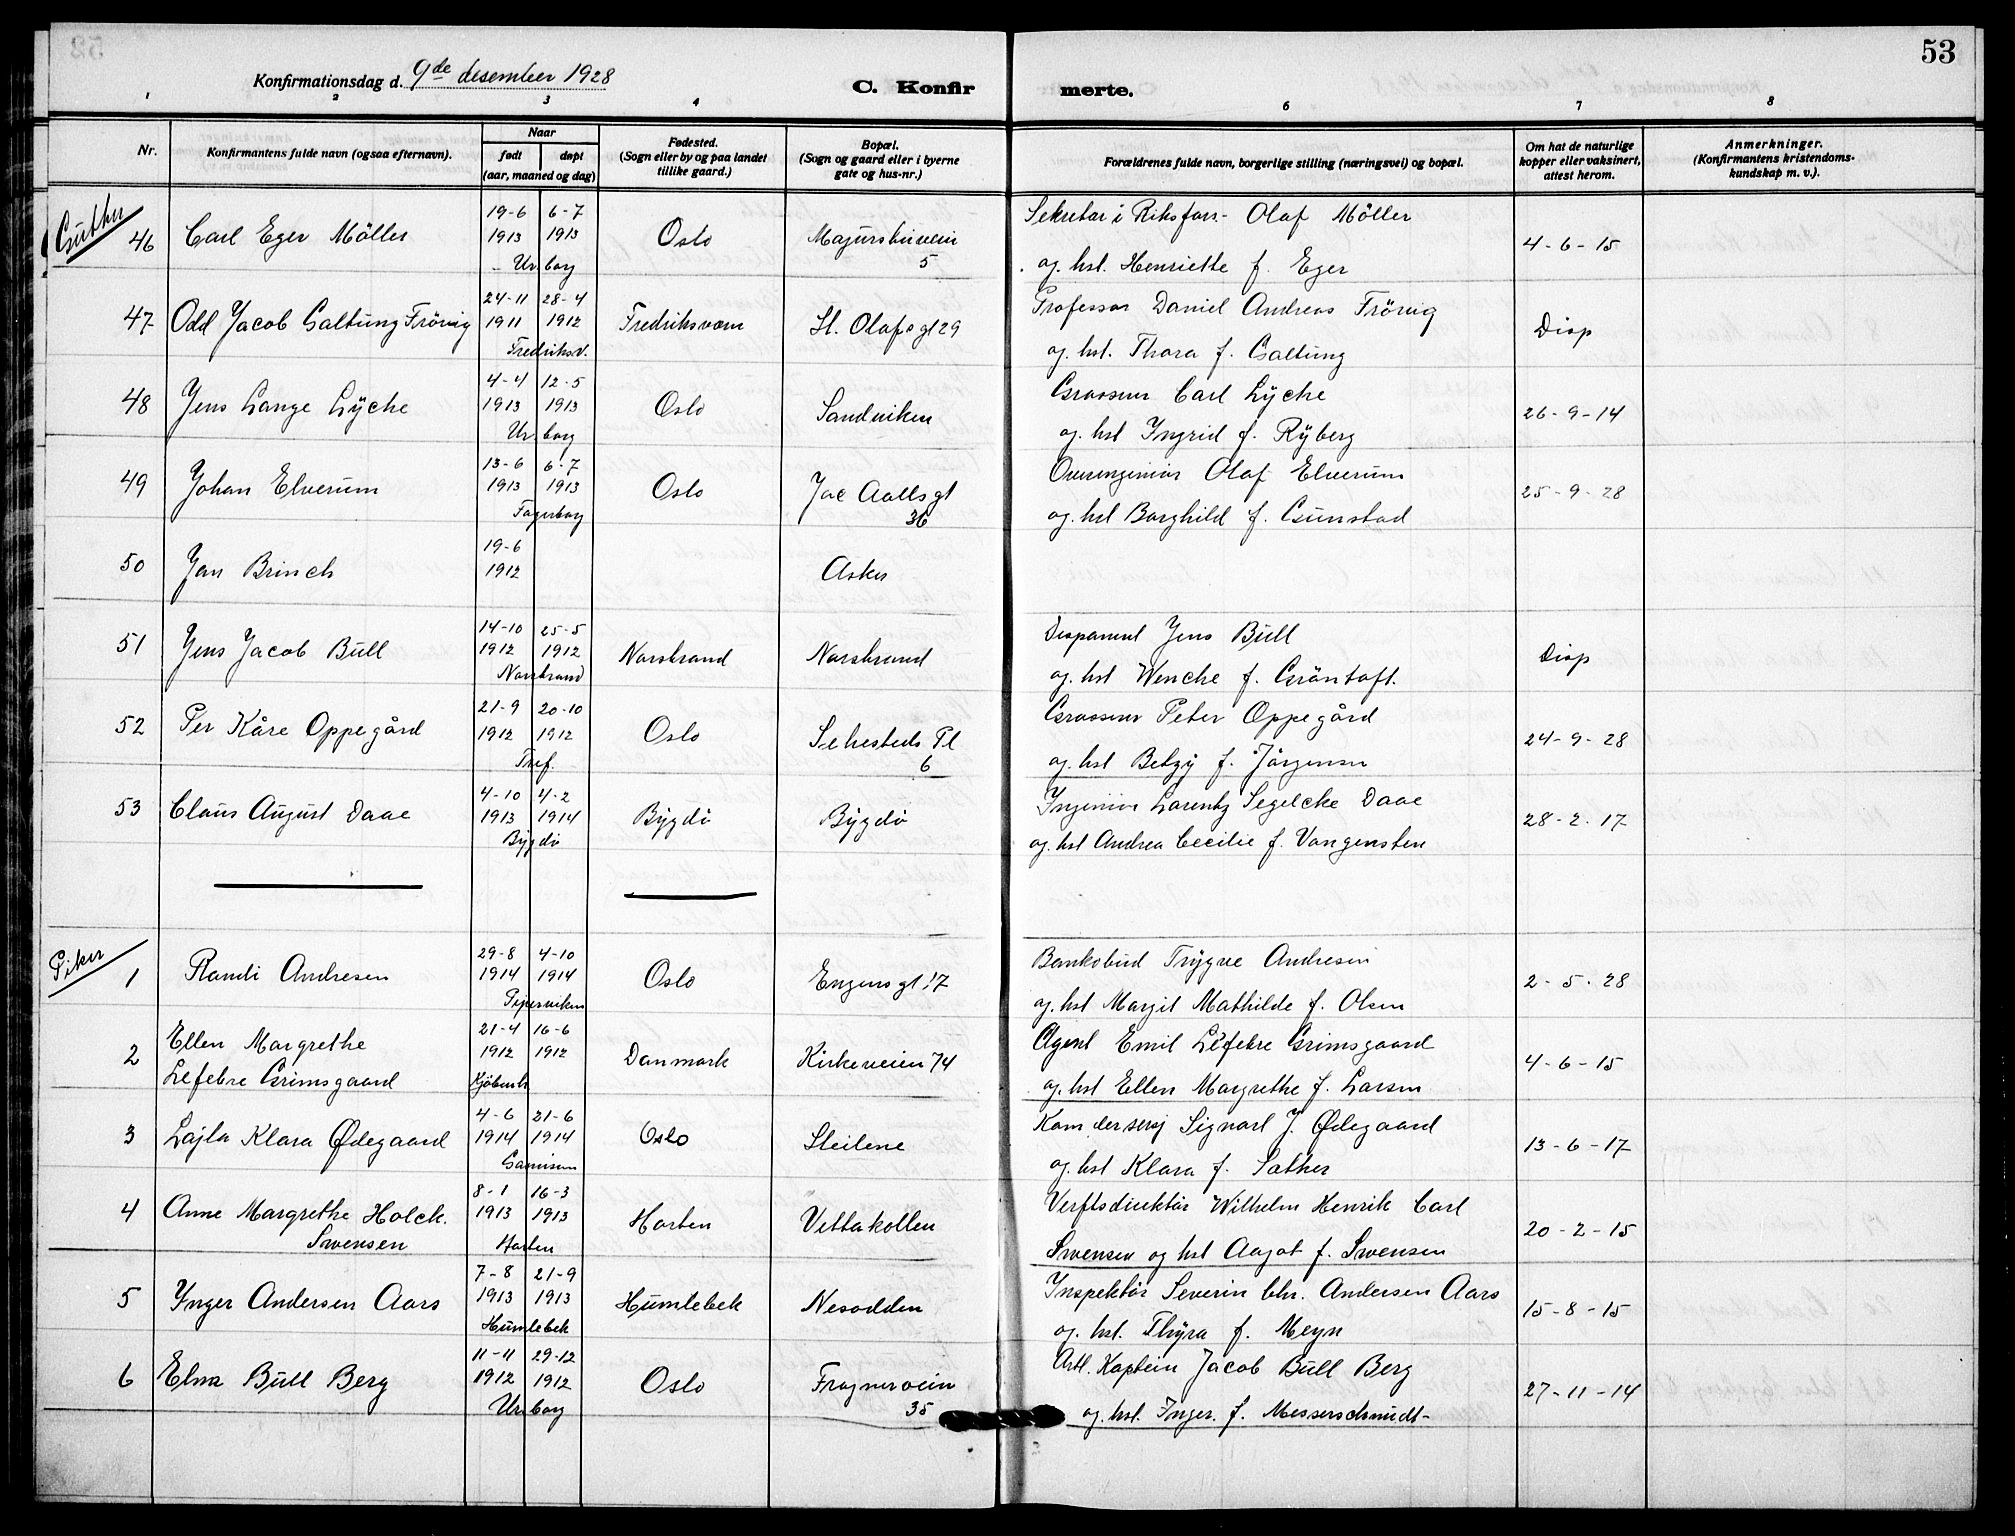 53
Konfirmationsdag d. 9de desember 1928
C. Konfirmerte.
1 2 3 4 6 7 8
Nr.
Konfirmantens fulde navn (ogsaa efternavn).
Naar
født døpt
(aar, maaned og dag)
Fødested.
(Sogn eller by og paa landet
tillike gaard.)
Bopæl.
(Sogn og gaard eller i byerne
gate og hus-nr.)
Forældrenes fulde navn, borgerlige stilling (næringsvei) og bopæl.
Om hat de naturlige
kopper eller vaksinert,
attest herom.
Anmerkninger.
(Konfirmantens kristendoms-
kundskap m. v.).
Gutter
46 Carl Eger Möller 19-6 1913 6-7 1913 Ur.borg Oslo 5
Sekretær i Riksfors- Olaf Möller
og hst. Henriette f. Eger
4-6-15
47 Odd Jacob Galtung Frövig 24-11 1911 28-4 1912 Fredriksv. Fredriksværn St. Olafs gt 29
Professor Daniel Andreas Frövig
og hst. Thora f. Galtung
Disp
48 Jens Lange Lyche 4-4 1913 12-5 1913 Ur.borg Oslo Sandviken
Grosserer Carl Lyche
og hst Ingrid f. Ryberg
26-9-14
49 Johan Elverum 13-6 1913 6-7 1913 Fagerborg Oslo Jac Aallsgt 36
Overingeniør Olaf Elverum
og hst Borghild f. Gunstad
25-9-28
50 Jan Brinch 19-6 1912 Asker
51 Jens Jacob Bull 14-10 1912 25-5 1912 Norstrand Norstrand Norstrand
Jens Bull
og hst Wenche f. Gröntoft.
Disp
52 Per Kåre Oppegård 21-9 1912 20-10 1912 Tref. Oslo Sehesteds Pl 6
Grosserer Peter Oppegård
og hst Betzy f. Jörgensen
24-9-28
53 Claus August Daae 4-10 1913 4-2 1914 Bygdø Bygdø Bygdø
Ingeniør Larentz Segelcke Daae
og hst Andrea Cecilie f. Vangensten
28-2-17
Piker
1 Randi Andresen 29-8 1914 4-10 1914 Pipervikens Oslo Engens gt 17
Bankobud Trygve Andresen
og hst Margit Mathilde f. Olsen
2-5-28
2 Ellen Margrethe
Lefebre Grimsgaard 21-4 1912 16-6 1912 Kjöbenh. Danmark Kirkeveien 74
Agent Emil Léfebre Grimsgaard
og hst Ellen Margrethe f. Larsen
4-6-15
3 Lajla Klara Ødegaard 4-6 1914 21-6 1914 Garnison Oslo Steilene
Kom dersersj Signart J. Ødegaard
og hst Klara f. Sæther
13-6-17
4 Anne Margrethe Holck.
Swensen 8-1 1913 16-3 1913 Horten Horten Vettakollen
Verftsdirektør Wilhelm Henrik Carl
Swensen og hst Aagot f. Swensen
20-2-15
5 Inger Andersen Aars 7-8 1913 21-9 1913 Humlebek Humlebek Nesodden
Inspektør Severin Chr. Andersen Aars
og hst. Thyra f. Meyn
15-8-15
6 Elna Bull Berg 11-11 1912 29-12 1912 Ur.borg Oslo Frognerveien 35
Art. Kaptein Jacob Bull Berg
og hst. Inger. f. Messerschmidt-
27-11-14